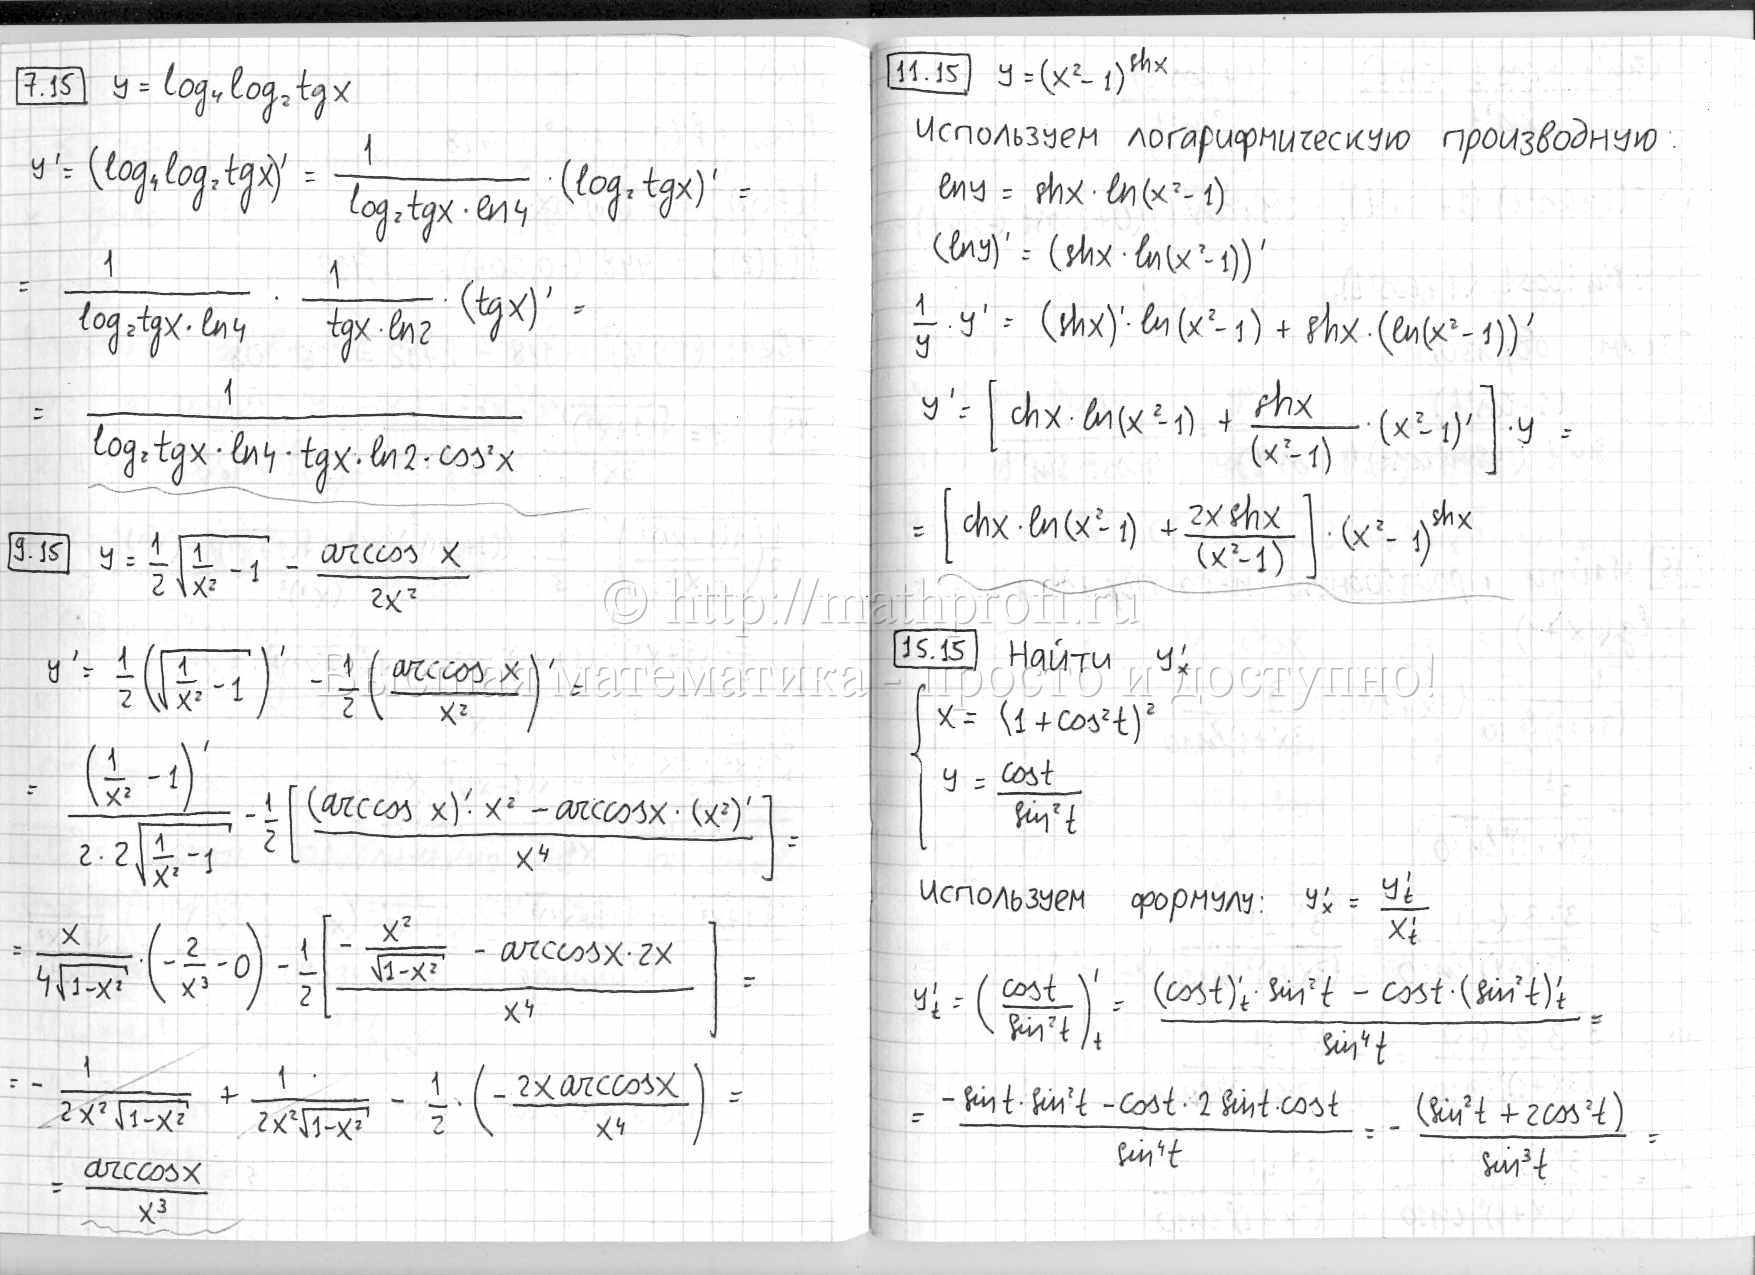 7.15 y = log₄ log₂ tgx
y' = (log₄ log₂ tgx)' = 1/(log₂ tgx · ln4) · (log₂ tgx)' =
= 1/(log₂ tgx · ln4) · 1/(tgx · ln2) · (tgx)' =
= 1/(log₂ tgx · ln4 · tgx · ln2 · cos²x)
9.15 y = 1/2 √(1/x² - 1) - arccos x/2x²
y' = 1/2 (√(1/x² - 1))' - 1/2 (arccos x/x²)' =
= (1/x² - 1)'/(2 · 2√(1/x² - 1)) - 1/2 [((arccos x)' · x² - arccosx · (x²)')/x⁴] =
= x/(4√(1-x²)) · (-2/x³ - 0) - 1/2 [(- x²/√(1-x²) - arccosx · 2x)/x⁴] =
= - 1/(2x²√(1-x²)) + 1/(2x²√(1-x²)) - 1/2 · (- 2x arccosx/x⁴) =
= arccosx/x³
11.15 y = (x² - 1)^shx
Используем логарифмическую производную:
lny = shx · ln(x² - 1)
(lny)' = (shx · ln(x² - 1))'
1/y · y' = (shx)' · ln(x² - 1) + shx · (ln(x² - 1))'
y' = [chx · ln(x² - 1) + shx/(x² - 1) · (x² - 1)'] · y =
= [chx · ln(x² - 1) + 2x shx/(x² - 1)] · (x² - 1)^shx
15.15 Найти y'ₓ
{ x = (1 + cos²t)²
y = cost/sin²t
Используем формулу: y'ₓ = y'ₜ/x'ₜ
y'ₜ = (cost/sin²t)'ₜ = ((cost)'ₜ · sin²t - cost · (sin²t)'ₜ)/sin⁴t =
= (-sint · sin²t - cost · 2 sint · cost)/sin⁴t = - (sin²t + 2cos²t)/sin³t =
© http://mathprofi.ru
Высшая математика - просто и доступно!